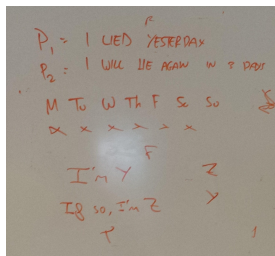 F
P₁ = I LIED YESTERDAY
P₂ = I WILL LIE AGAIN IN 3 DAYS
M Tu W Th F Sa Su
x x x x x x x
F
I'm Y Z
If so, I'm Z Y
T